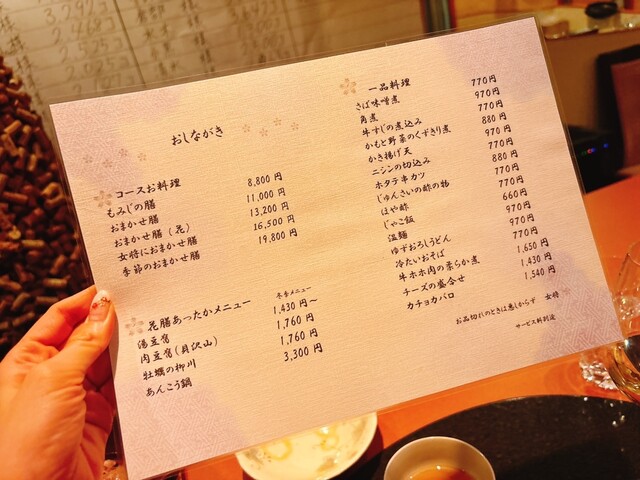 おしながき
コースお料理
もみじの膳 8,800円
おまかせ膳 11,000円
おまかせ膳(花) 13,200円
女将におまかせ膳 16,500円
季節のおまかせ膳 19,800円
花膳あったかメニュー 冬季メニュー
湯豆腐 1,430円~
肉豆腐(具沢山) 1,760円
牡蠣の柳川 1,760円
あんこう鍋 3,300円
一品料理
さば味噌煮
角煮
牛すじの煮込み
かもと野菜のくずきり煮
かき揚げ天
ニシンの切込み
ホタテ串カツ
じゅんさいの酢の物
ほや酢
じゃこ飯
温麺
ゆずおろしうどん
冷たいおそば
牛ホホ肉の柔らか煮
チーズの盛合せ
カチョカバロ
770円
970円
770円
880円
970円
770円
880円
770円
660円
970円
970円
770円
1,650円
1,430円
1,540円
お品切れのときは悪しからず 女将
サービス料別途